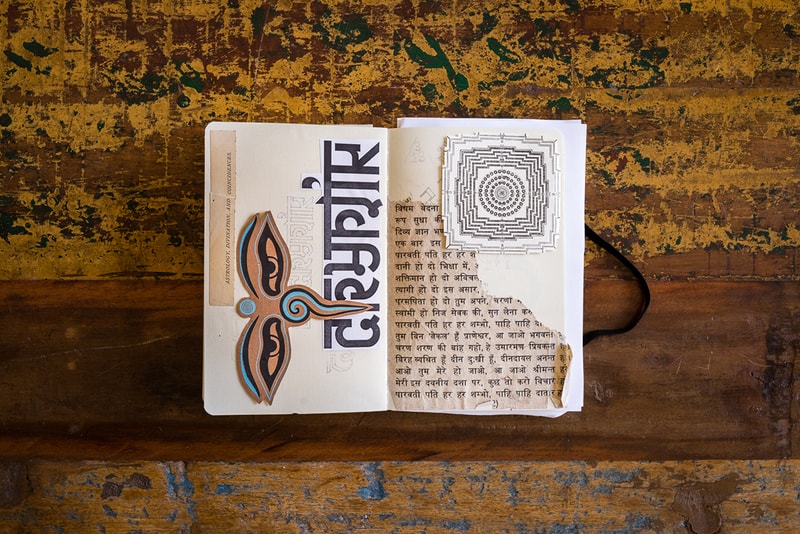 ASTROLOGY, DIVINATION, AND COINCIDENCES
विषम वेदना
रूप सुधा की
दिव्य ज्ञान
एक बार इस
पारवती पति हर हर श
दानी हो दो भिक्षा में,
शक्तिमान हो दो अविचल
त्यागी हो दो इस असार
परमपिता हो तुम अपने, चरणों
स्वामी हो निज सेवक की, सुन लेना
पारवती पति हर हर शम्भो, पाहि पाहि
तुम बिन 'बेकल' हूँ प्राणेश्वर, आ जाओ भगवन्त
चरण शरण की बांह गहो, हे उमारमण प्रियकन्त
विरह व्यथित हूँ दीन दुःखी हूँ, दीनदयाल अनन्त
आओ तुम मेरे हो जाओ, आ जाओ श्रीमन्त
मेरी इस दयनीय दशा पर, कुछ तो करो विचार
पारवती पति हर हर शम्भो, पाहि पाहि दातार